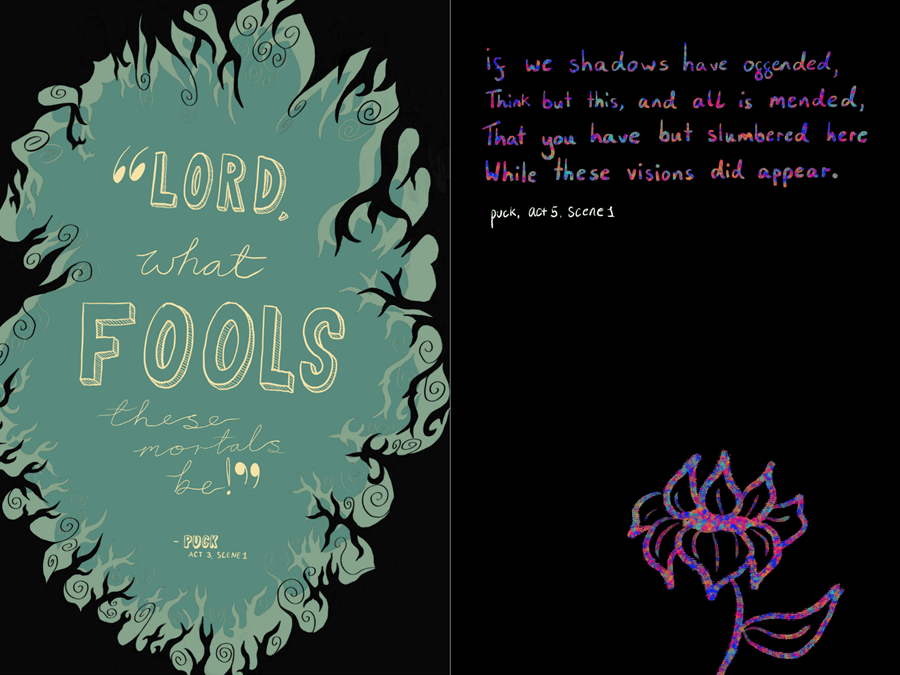 “LORD,
what
FOOLS
these
mortals
be!”
- PUCK
ACT 3, SCENE 1
if we shadows have offended,
Think but this, and all is mended,
That you have but slumbered here
While these visions did appear.
puck, act 5, scene 1